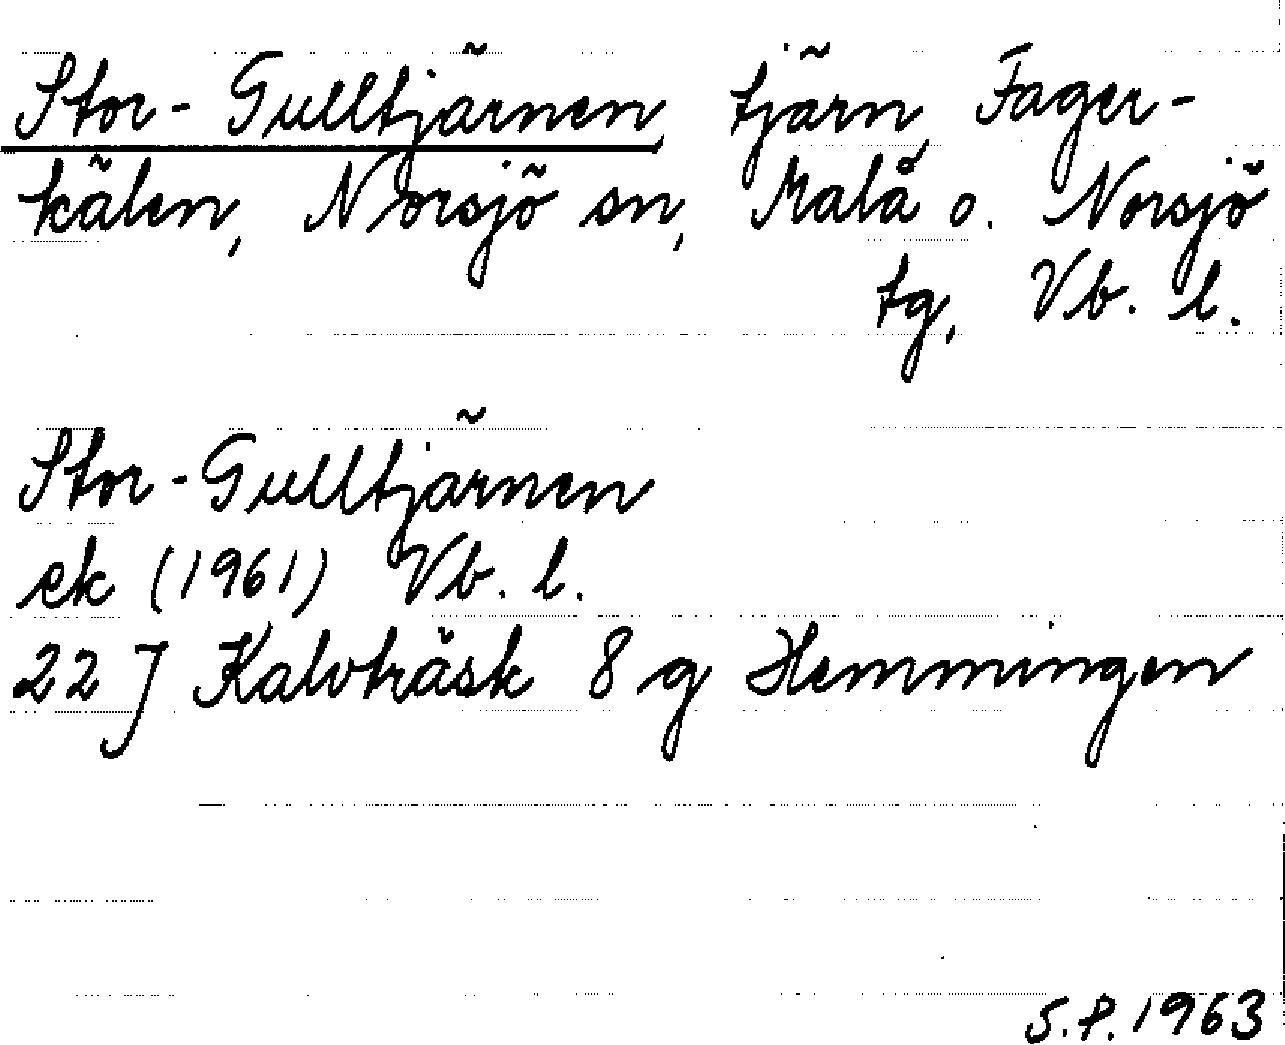 Stor-Gulltjärnen, tjärn, Fager-
kälen, Norsjö sn, Malå o. Norsjö
tg, Vb. l.
Stor-Gulltjärnen
ek (1961) Vb. l.
22 J Kalvträsk 8 g Hemmingen
S.P. 1963